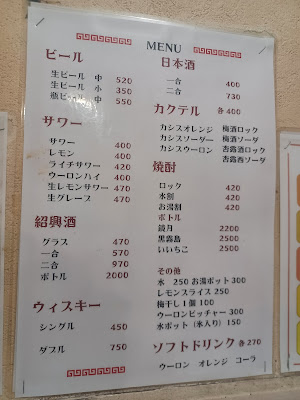 MENU
ビール
生ビール 中 520
生ビール 小 350
瓶ビール 中 550
サワー
サワー 400
レモン 400
ライチサワー 420
ウーロンハイ 420
生レモンサワー 470
生グレープ 470
紹興酒
グラス 470
一合 570
二合 970
ボトル 2000
ウィスキー
シングル 450
ダブル 750
日本酒
一合 400
二合 730
カクテル 各400
カシスオレンジ 梅酒ロック
カシスソーダー 梅酒ソーダ
カシスウーロン 杏露酒ロック
杏露酒ソーダ
焼酎
ロック 420
水割 420
お湯割 420
ボトル
鏡月 2200
黒霧島 2500
いいちこ 2500
その他
水 250 お湯ポット 300
レモンスライス 250
梅干し1個 100
ウーロンピッチャー 300
水ポット(氷入り) 150
ソフトドリンク 各270
ウーロン オレンジ コーラ